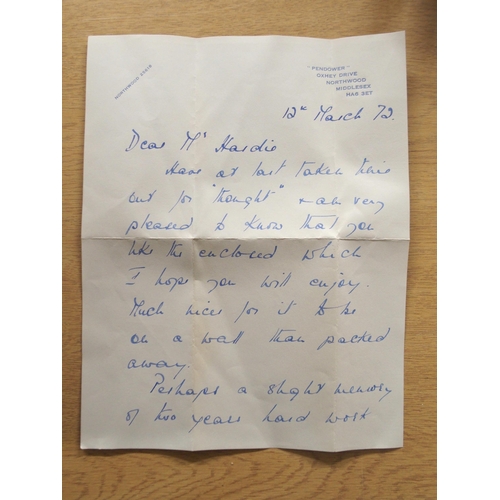 NORTHWOOD
"PENDOWER"
OXHEY DRIVE
NORTHWOOD
MIDDLESEX
HA6 3ET
12th March 72.
Dear Mr Hardie
Have at last taken time
out for "thought" & am very
pleased to know that you
like the enclosed which
I hope you will enjoy.
Much nicer for it to be
on a wall than packed
away.
Perhaps a slight memory
of two years hard work